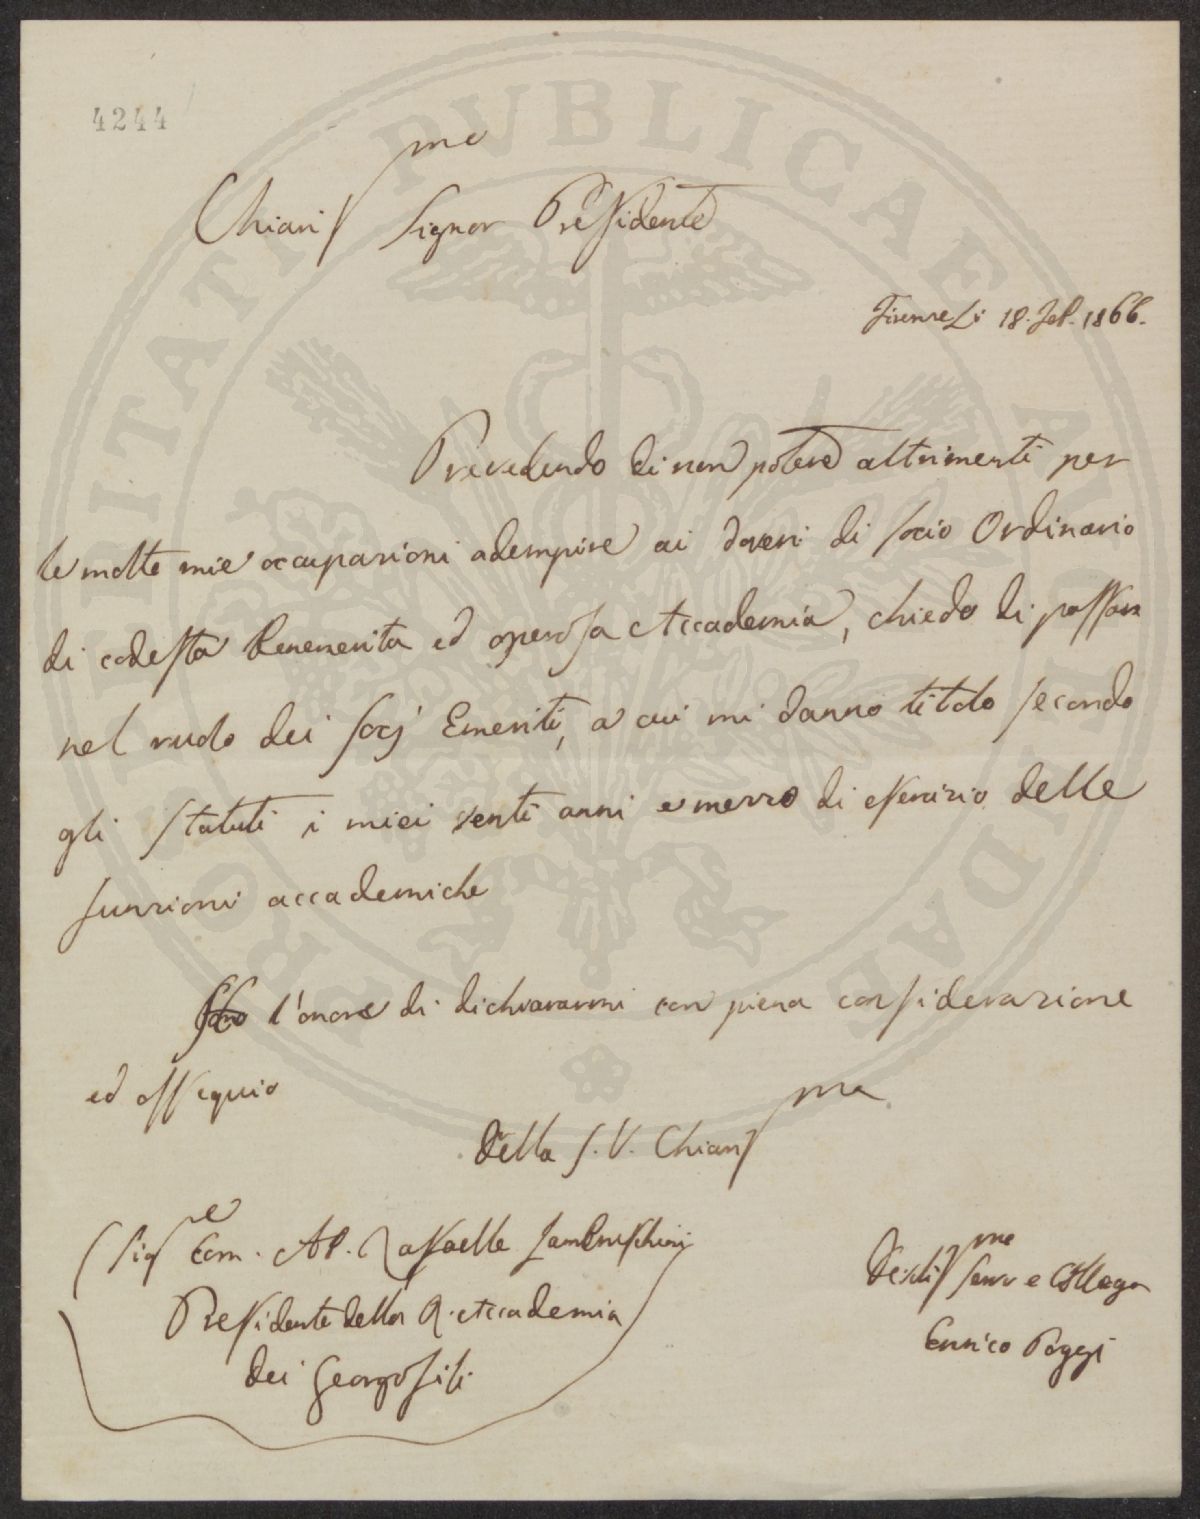 4244
Chiariss.me Signor Presidente
Firenze Li 18. Feb. 1866.
Prevedendo di non potere altrimenti per
le molte mie occupazioni adempire ai doveri di socio Ordinario
di codesta Benemerita ed operosa Accademia, chiedo di passare
nel ruolo dei socj Emeriti, a cui mi danno titolo secondo
gli statuti i miei venti anni e mezzo di esercizio delle
funzioni accademiche
l'onore di dichiararmi con piena considerazione
ed ossequio
Della S. V. Chiariss.ma
Sig.e Com. Ab. Raffaelle Lambruschini
Presidente della R. Accademia
dei Georgofili
Servo e Collega
Enrico Poggi
PROSPERITATI PUBLICAE AUGENDAE